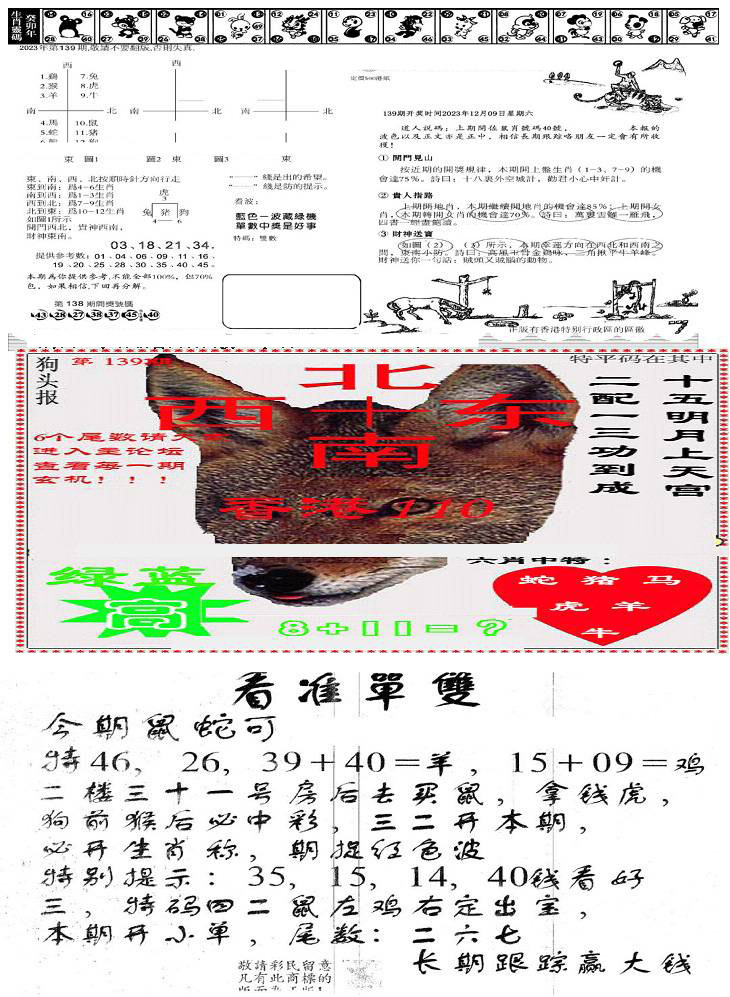 生肖靈碼
癸卯年
2023年第139期,敬請不要翻版,否則失真.
西
西
1.鷄 7.兔
2.猴 8.虎
3.羊 9.牛
南 北 南 北
4.馬 10.鼠
5.蛇 11.豬
東 圖1 圖2 東 圖3 東
東、南、西、北按順時針方向行走
東到南：爲4-6生肖
南到西：爲1-3生肖
西到北：爲7-9生肖
北到東：爲10-12生肖
如圖1所示
開門西北，貴神西南，
財神東南。
虎
3
兔 豬 狗
6
綫是出的希望。
綫是防的提示。
看波：
藍色一波藏綠機
單數中獎是好事
特碼：雙數
03、18、21、34.
提供參考數：01、04、06、09、11、16、
19、20、25、28、30、35、40、45。
本期爲你提供參考,不能全部100%，但70%
包，如果相信,下回再分解。
第138期開獎號碼
43 28 27 38 37 45 40
定價500港紙
139期开奖时间2023年12月09日星期六
道人説碼：上期開估鼠肖號碼40號， 本報的
波色以及正文亦是正中，相信長期跟踪咯朋友一定會有所收
獲！
① 開門見山
按近期的開獎規律，本期開上盤生肖（1-3、7-9）的機
會達75％。詩曰：十八裏外空城計，勸君小心中奸計。
② 貴人指路
上期開地肖，本期繼續開地肖的機會達85％；上期開女
肖，本期轉開女肖的機會達70％。詩曰：萬裏雲羅一雁飛，
③ 財神送寶
如圖（2）（3）所示，本期幸運方向在西北和西南之
財神送你一句話：賊頭又賊腦的動物。
正版有香港特别行政區的區徽
狗头报
第 139期
特平码在其中
北
西 十 东
南
十五明月上天宫
二配一三功到成
6个尾数请大家
进入主论坛
查看每一期
玄机！！！
香港 110
六肖中特：
绿 蓝
高
8+11=?
蛇 猪 马
虎 羊
牛
看准單雙
今期鼠蛇可
特46，26，39+40=羊，15+09=鸡
二楼三十一号房后去买鼠，拿钱虎，
狗前猴后必中彩，三二开本期，
必开生肖称，期捉红色波
特别提示：35，15，14，40钱看好
三，特码四二鼠左鸡右定出宝，
本期开小单，尾数：二六七
敬請彩民留意
凡有此商標的
长期跟踪赢大钱